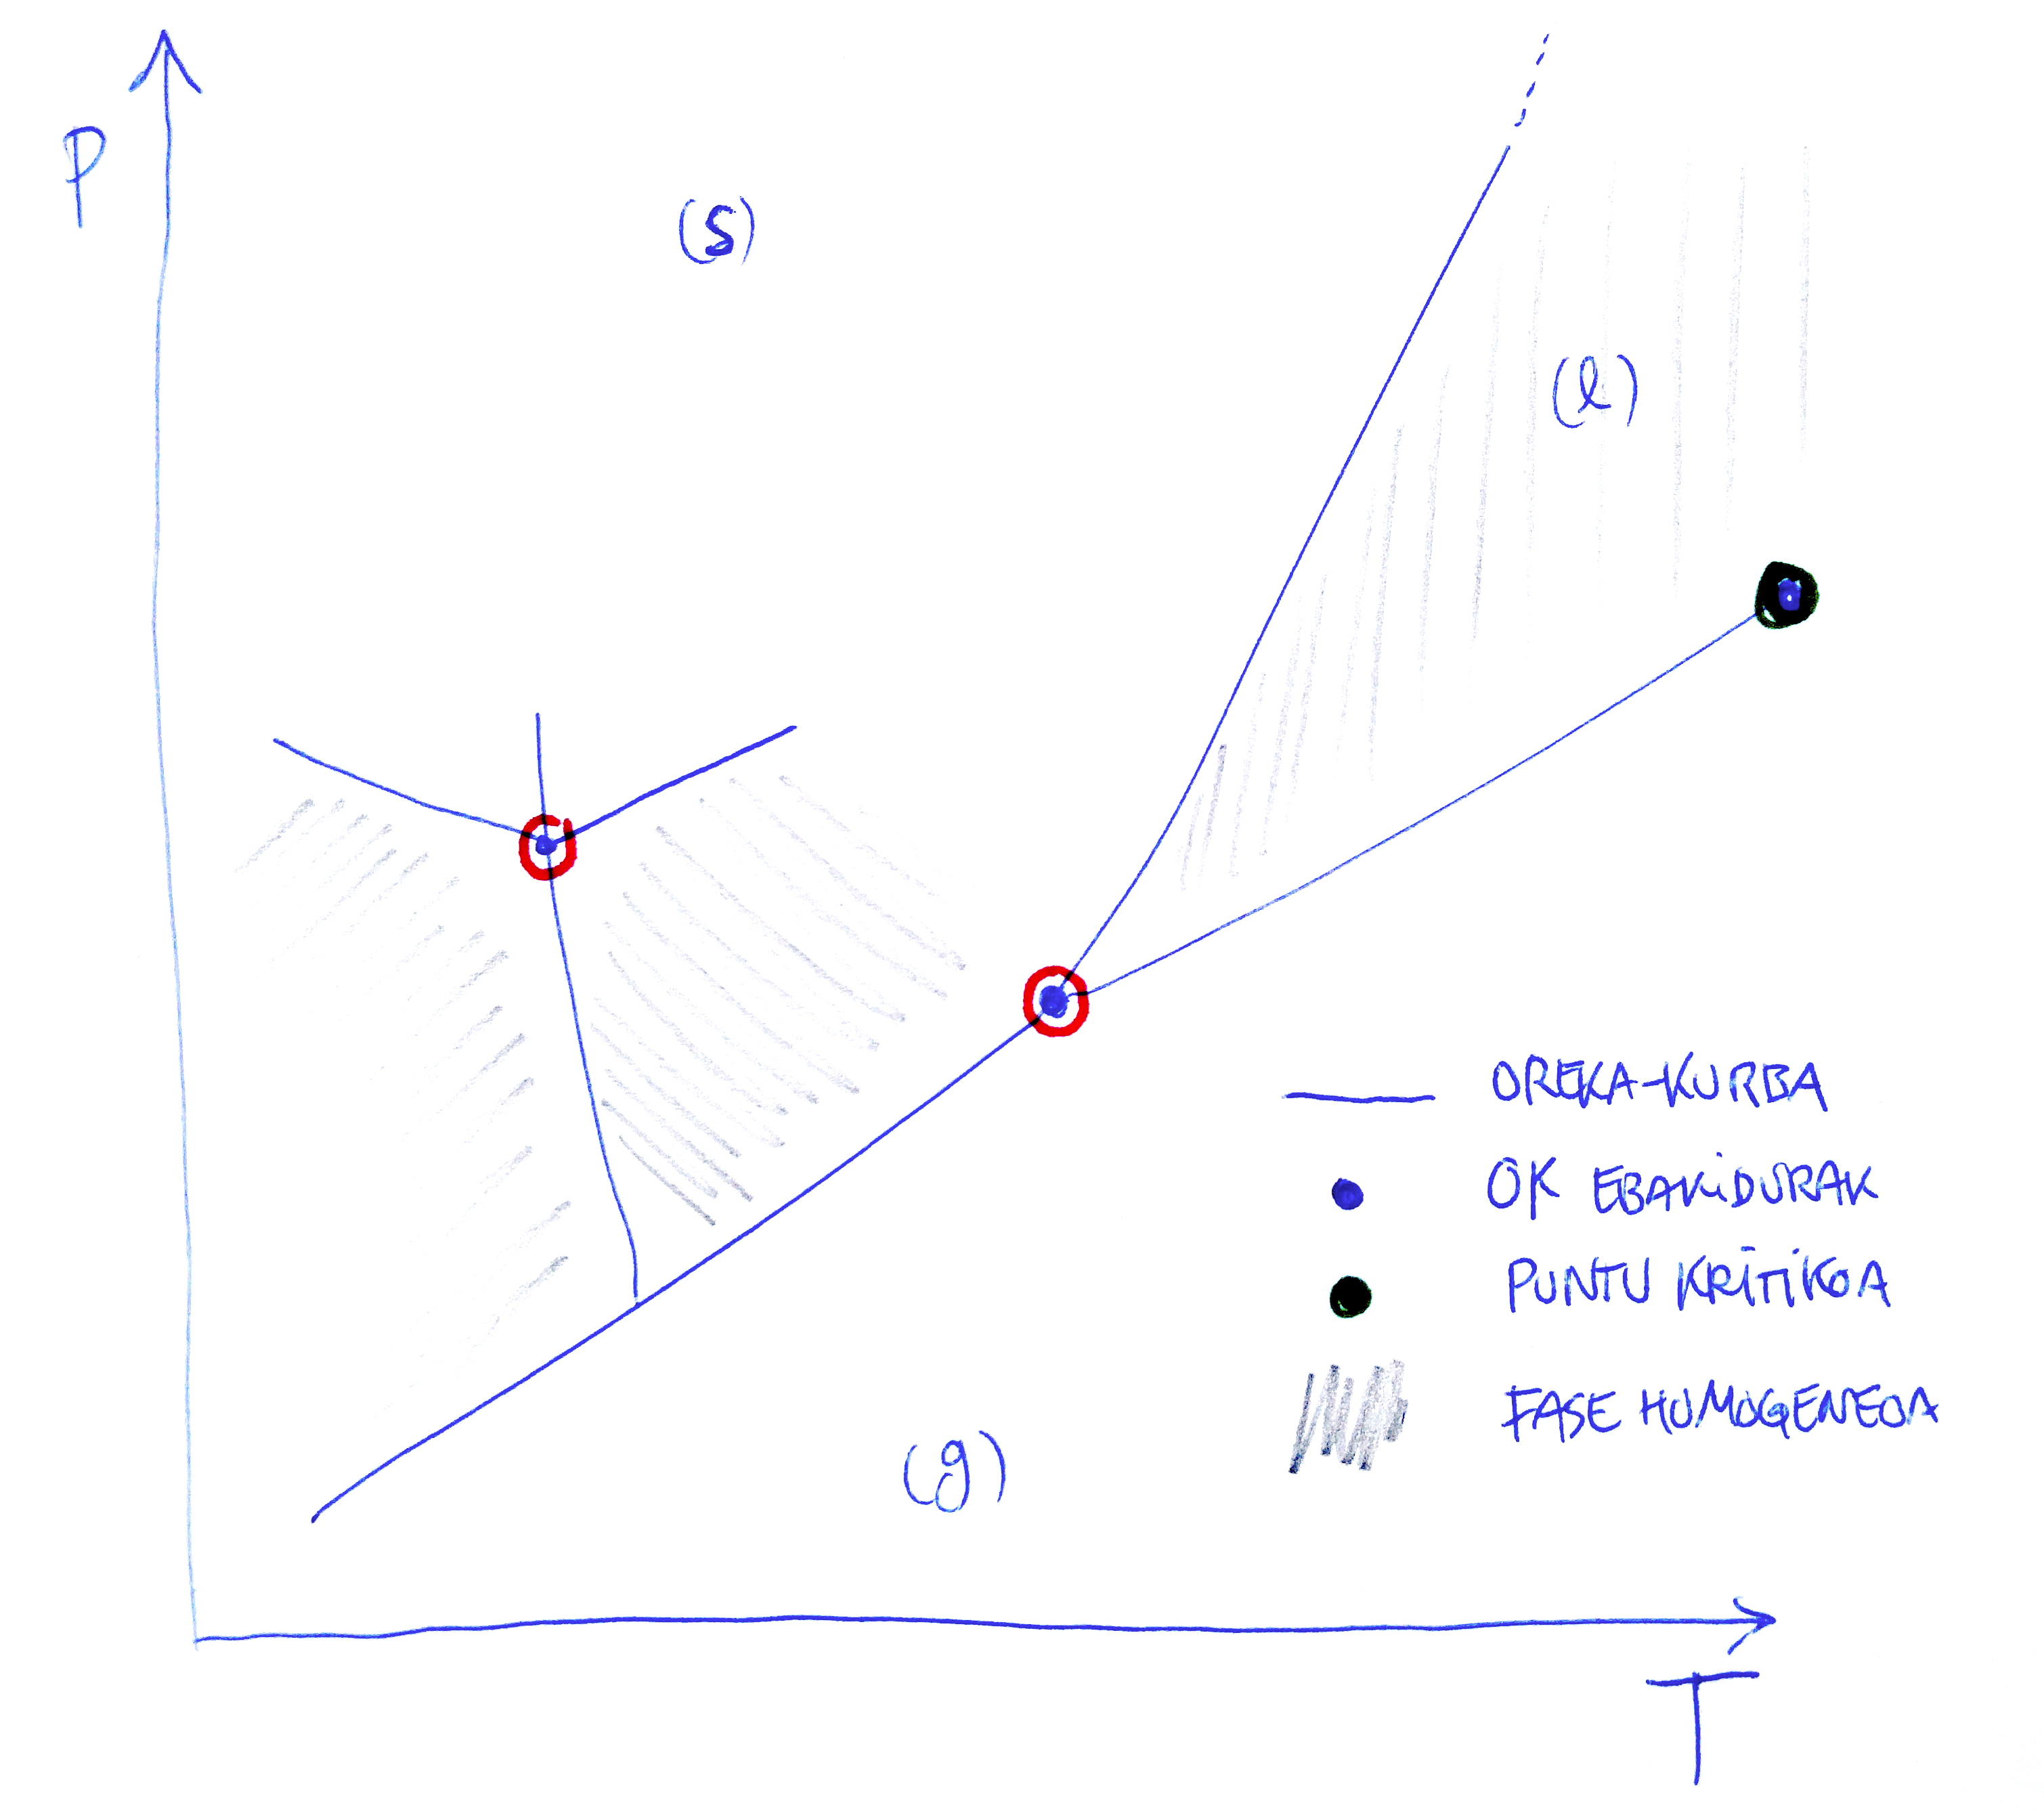 P
(s)
(l)
OREKA-KURBA
OK EBAKiDURAK
PUNTU KRiTiKOA
FASE HOMOGENEOA
(g)
T